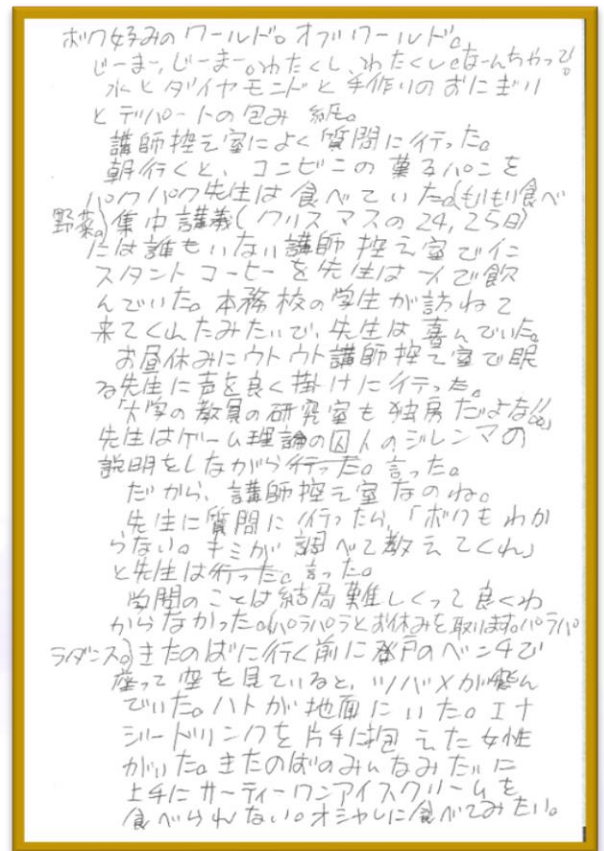 ボク好みのワールド。オブワールド。
じーまー、じーまー。わたくし、わたくし。なーんちゃって。
水とダイヤモンドと手作りのおにぎり
とデパートの包み紙。
講師控え室によく質問に行った。
朝行くと、コンビニの菓子パンを
パクパク先生は食べていた。(もりもり食べ
野菜。)集中講義(クリスマスの24,25日)
には誰もいない講師控え室でイン
スタントコーヒーを先生は一人で飲
んでいた。本務校の学生が訪ねて
来てくれたみたいで、先生は喜んでいた。
お昼休みにウトウト講師控え室で眠
る先生に声を良く掛けに行った。
大学の教員の研究室も独房だよな!!。」
先生はゲーム理論の囚人のジレンマの
説明をしながら行った。言った。
だから、講師控え室なのね。
先生に質問に行ったら、「ボクもわか
らない。キミが調べて教えてくれ」
と先生は行った。言った。
学問のことは結局難しくって良くわ
からなかった。(パラパラとお休みを取ります。パラパ
ラダンス。)きたのばに行く前に登戸のベンチで
座って空を見ていると、ツバメが飛ん
でいた。ハトが地面にいた。エナ
ジードリンクを片手に抱えた女性
がいた。きたのばのみんなみたいに
上手にサーティーワンアイスクリームを
食べられない。オシャレに食べてみたい。